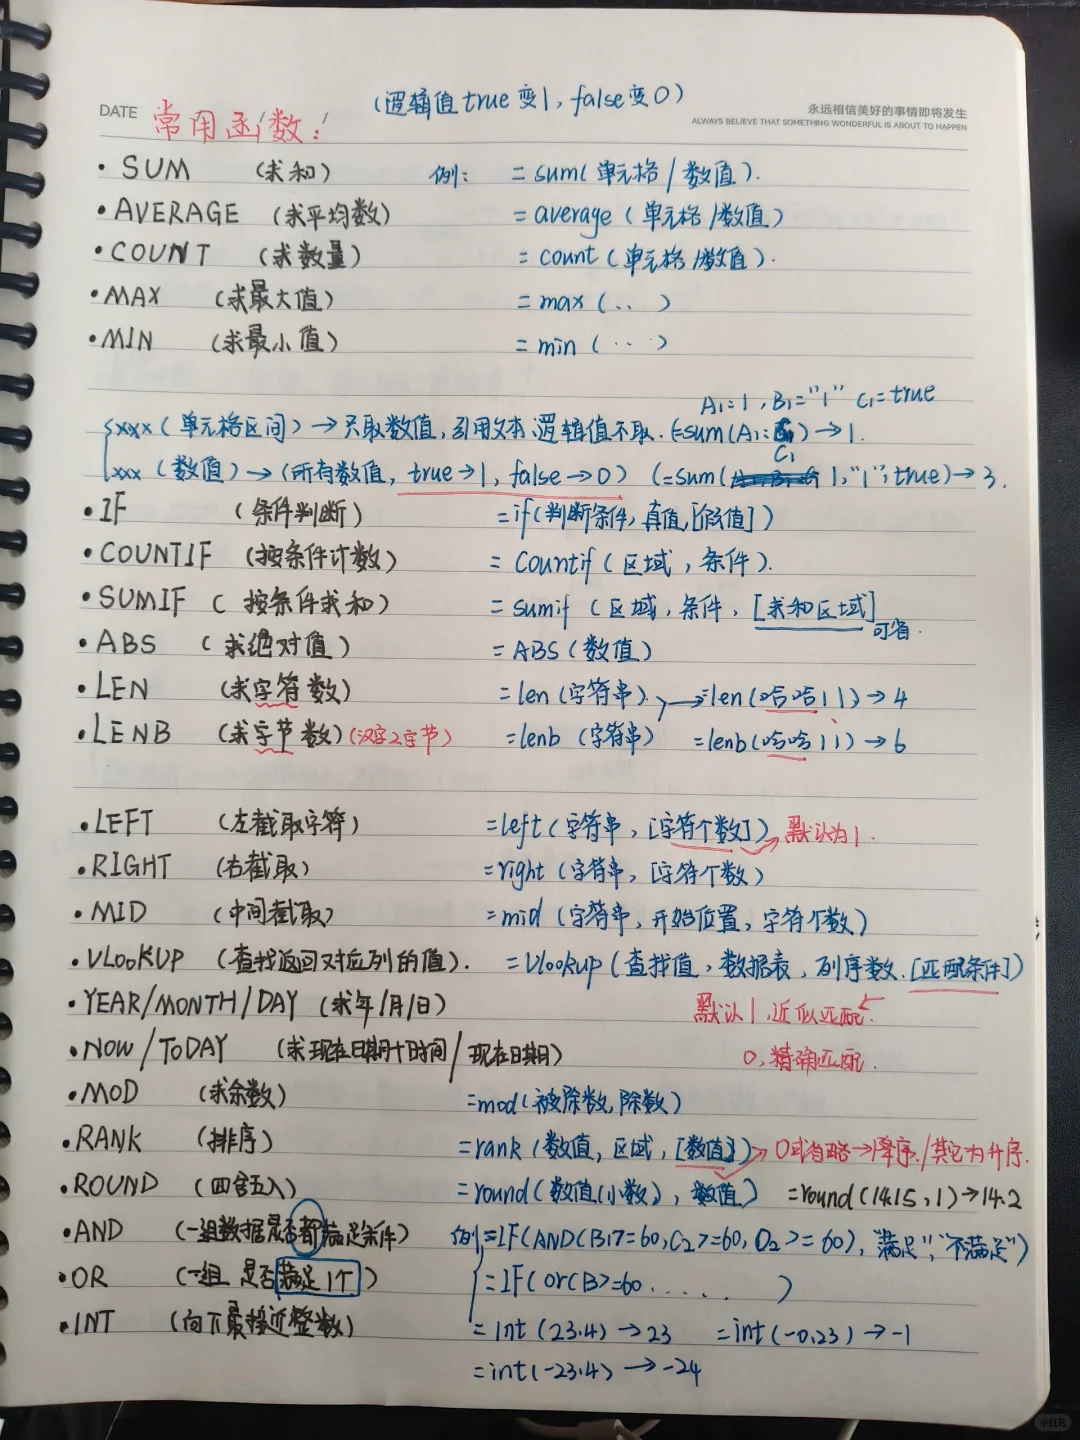 (逻辑值true变1，false变0)
DATE 常用函数：
永远相信美好的事情即将发生
ALWAYS BELIEVE THAT SOMETHING WONDERFUL IS ABOUT TO HAPPEN
· SUM (求和) 例： = sum( 单元格 / 数值 ).
· AVERAGE (求平均数) = average (单元格/数值)
· COUNT (求数量) = count (单元格/数值).
· MAX (求最大值) = max ( .. )
· MIN (求最小值) = min ( ... )
A1=1, B1="1" C1=true
xxx (单元格区间) → 只取数值，引用文本、逻辑值不取. (=sum(A1: C1) → 1.
xxx (数值) → (所有数值, true→1, false→0) (=sum( 1,"1",true) → 3.
· IF (条件判断) = if(判断条件, 真值,[假值])
· COUNTIF (按条件计数) = Countif (区域, 条件).
· SUMIF ( 按条件求和) = sumif (区域, 条件, [求和区域] 可省.
· ABS (求绝对值) = ABS (数值)
· LEN (求字符数) = len (字符串). → =len(哈哈11) → 4
· LENB (求字节数) (汉字2字节) = lenb (字符串) =lenb(哈哈11) → 6
· LEFT (左截取字符) = left (字符串, [字符个数]) → 默认为1.
· RIGHT (右截取) = right (字符串, [字符个数)
· MID (中间截取) = mid (字符串, 开始位置, 字符个数)
· VLOOKUP (查找返回对应列的值). = Vlookup (查找值, 数据表, 列序数. [匹配条件])
· YEAR/MONTH/DAY (求年/月/日) 默认1,近似匹配.
· NOW/ToDAY (求现在日期+时间/现在日期) 0,精确匹配.
· MOD (求余数) =mod(被除数,除数)
· RANK (排序) =rank (数值, 区域, [数值]) → 0或省略→降序./其它为升序.
· ROUND (四舍五入) =round(数值(小数), 数值) =round(14.15,1)→14.2
· AND (一组数据是否都满足条件) 例 =IF(AND(B1>=60,C2>=60,D2>=60), "满足","不满足")
· OR (一组 是否满足1个 ) =IF(or(B>=60 ..... )
· INT (向下最接近整数) = int (23.4) → 23 = int(-0.23) → -1
= int(-23.4) → -24
小红书